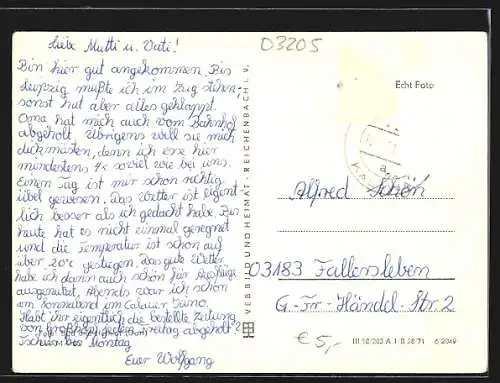 03205
Liebe Mutti u. Vati!
Bin hier gut angekommen. Bis
Leipzig mußte ich im Zug stehen,
sonst hat aber alles geklappt.
Oma hat mich auch vom Bahnhof
abgeholt. Übrigens will sie mich
dickmästen, denn ich esse hier
mindestens 4x soviel wie bei uns.
Einen Tag ist mir schon richtig
übel gewesen. Das Wetter ist eigent-
lich besser als ich gedacht habe. Bis
heute hat es nicht einmal geregnet
und die Temperatur ist schon auf
über 20°C gestiegen. Das gute Wetter
habe ich dann auch schön für
ausgenutzt. Abends war ich schon
am Sonnabend im Calauer Kino.
Habt ihr eigentlich die bestellte Zeitung
von jeden Freitag abgeholt?
Tschüss bis Montag
Euer Wolfgang
VEB BILD UND HEIMAT · REICHENBACH I. V.
Echt Foto
Alfred Schön
03183 Fallersleben
G.-Fr.-Händel-Str. 2
€ 5,-